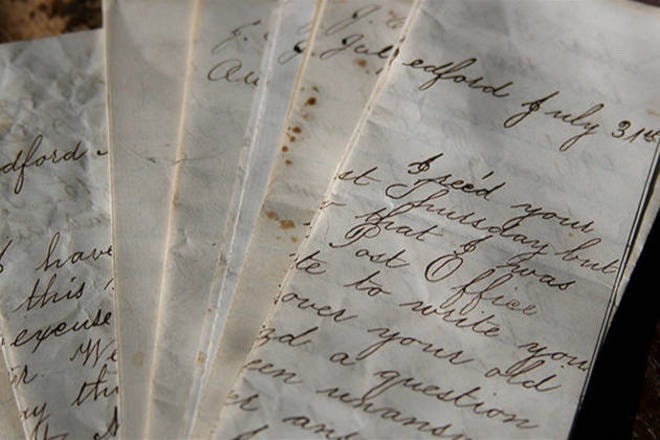 dford
I have
this
excuse
We
J.
Au
J.
J. Jul
edford July 31st
I rec'd your
st Thursday but
that I was
Post Office
te to write you
over your old
zd a question
een unansw